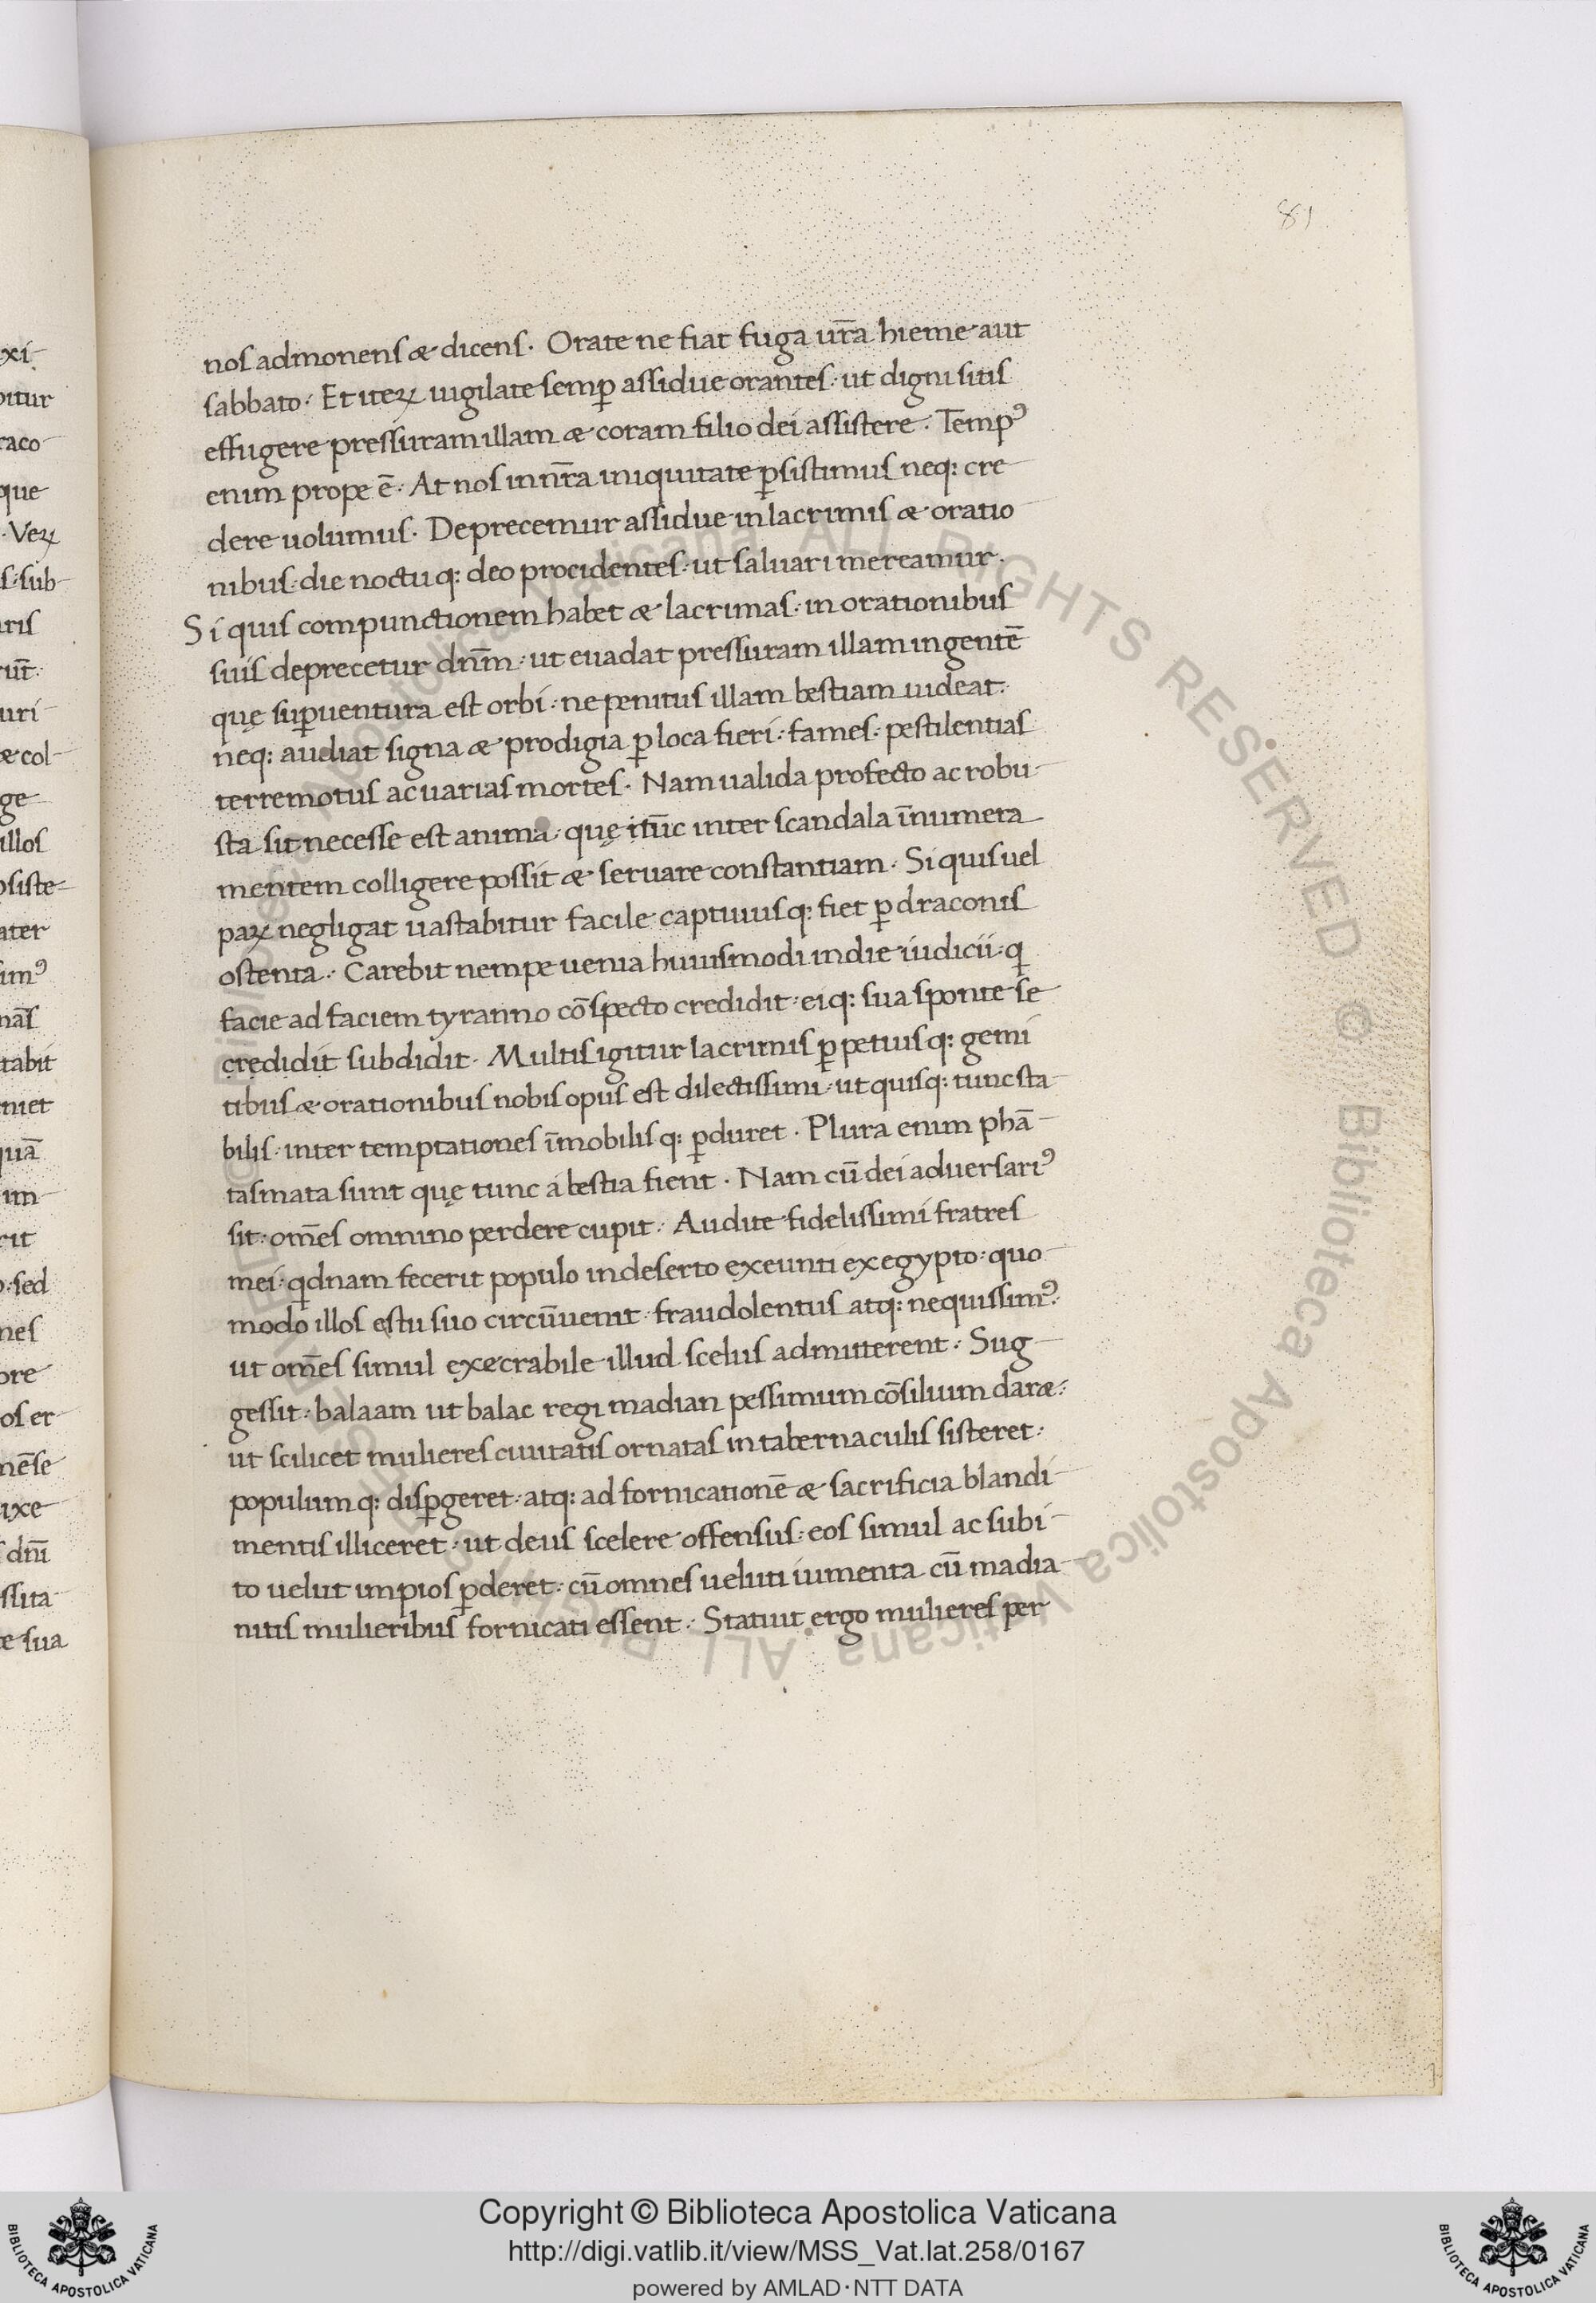 81
nos admonens & dicens. Orate ne fiat fuga ur̄a hieme aut
sabbato. Et iteꝝ uigilate semꝑ assidue orantes: ut digni sitis
effugere pressuram illam & coram filio dei assistere. Tempꝰ
enim prope ē. At nos in nr̄a iniquitate ꝑsistimus neq: cre
dere uolumus. Deprecemur assidue in lacrimis & oratio
nibus: die noctuq: deo procidentes: ut saluari mereamur.
Si quis compunctionem habet & lacrimas: in orationibus
suis deprecetur dn̄m: ut euadat pressuram illam ingentē
quę suꝑuentura est orbi: ne penitus illam bestiam uideat:
neq: audiat signa & prodigia ꝑ loca fieri: fames: pestilentias
terremotus ac uarias mortes. Nam ualida profecto ac robu
sta sit necesse est anima: quę itūc inter scandala īnumera
mentem colligere possit & seruare constantiam. Si quis uel
paꝝ negligat uastabitur facile captiuusq: fiet ꝑ draconis
ostenta. Carebit nempe uenia huiusmodi in die iudicii: qͥ
facie ad faciem tyranno cōspecto credidit: eiq: sua sponte se
credidit subdidit. Multis igitur lacrimis ꝑpetuisq: gemi
tibus & orationibus nobis opus est dilectissimi: ut quisq: tunc sta
bilis: inter temptationes īmobilisq: ꝑduret. Plura enim phā
tasmata sunt quę tunc a bestia fient. Nam cū dei aduersariꝰ
sit: om̄es omnino perdere cupit. Audite fidelissimi fratres
mei: qͥdnam fecerit populo in deserto exeunti ex egypto: quo
modo illos ęstu suo circūuenit: fraudolentus atq: nequissimꝰ:
ut om̄es simul execrabile illud scelus admitterent. Sug
gessit: balaam ut balac regi madian pessimum cōsilium dar&:
ut scilicet mulieres ciuitatis ornatas in tabernaculis sisteret:
populumq: disꝑgeret: atq: ad fornicationē & sacrificia blandi
mentis illiceret: ut deus scelere offensus: eos simul ac subi
to uelut impios ꝑderet: cū omnes ueluti iumenta cū madia
nitis mulieribus fornicati essent. Statuit ergo mulieres per
Copyright © Biblioteca Apostolica Vaticana
http://digi.vatlib.it/view/MSS_Vat.lat.258/0167
powered by AMLAD·NTT DATA